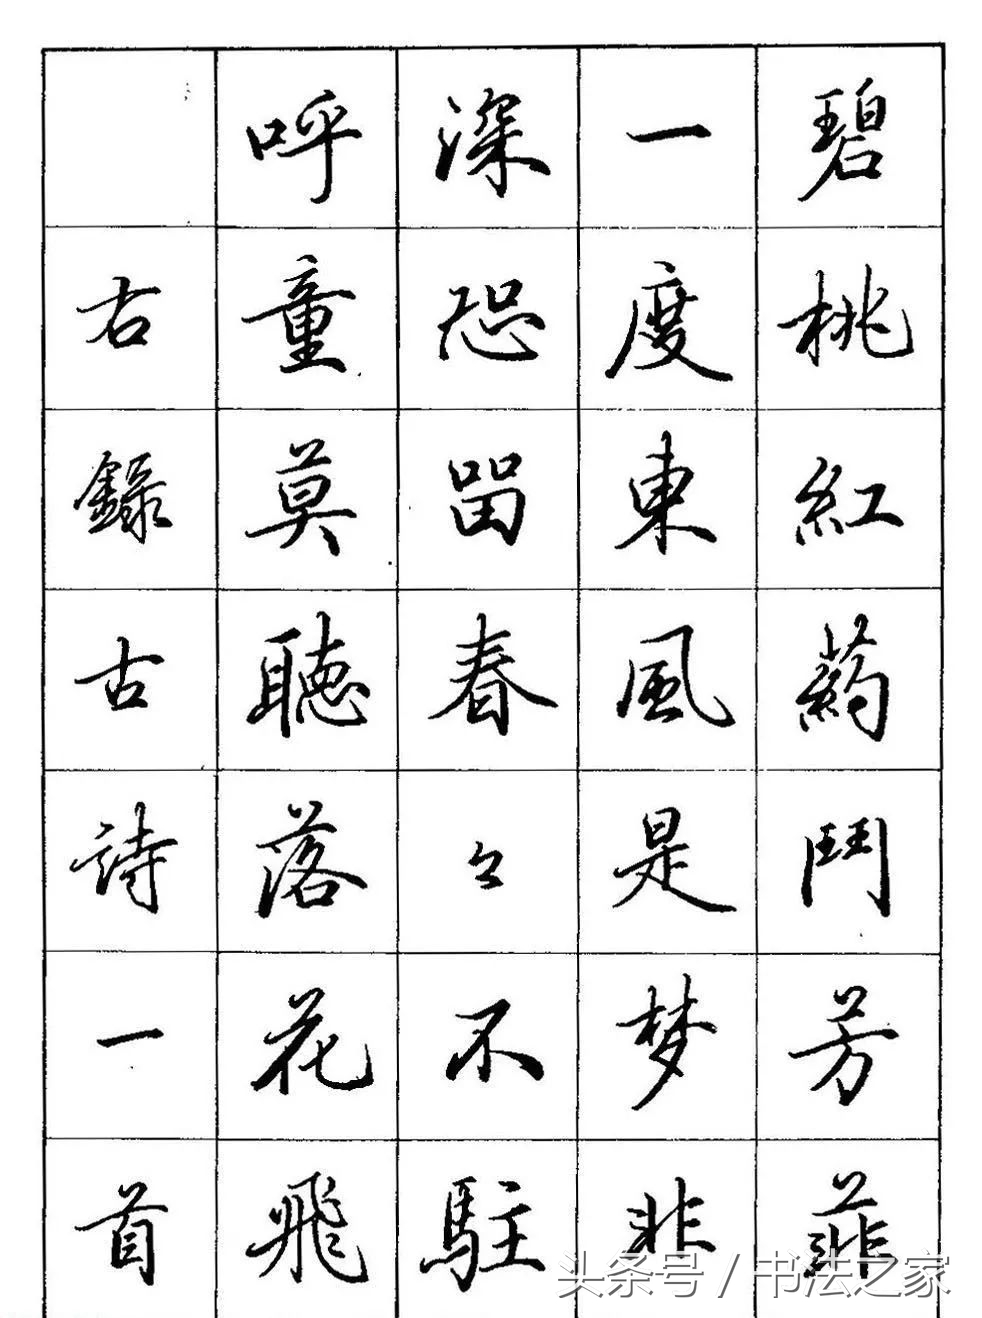 碧桃紅葯鬥芳菲
一度東風是梦非
深恐留春々不駐
呼童莫聽落花飛
右錄古詩一首
头条号 / 书法之家